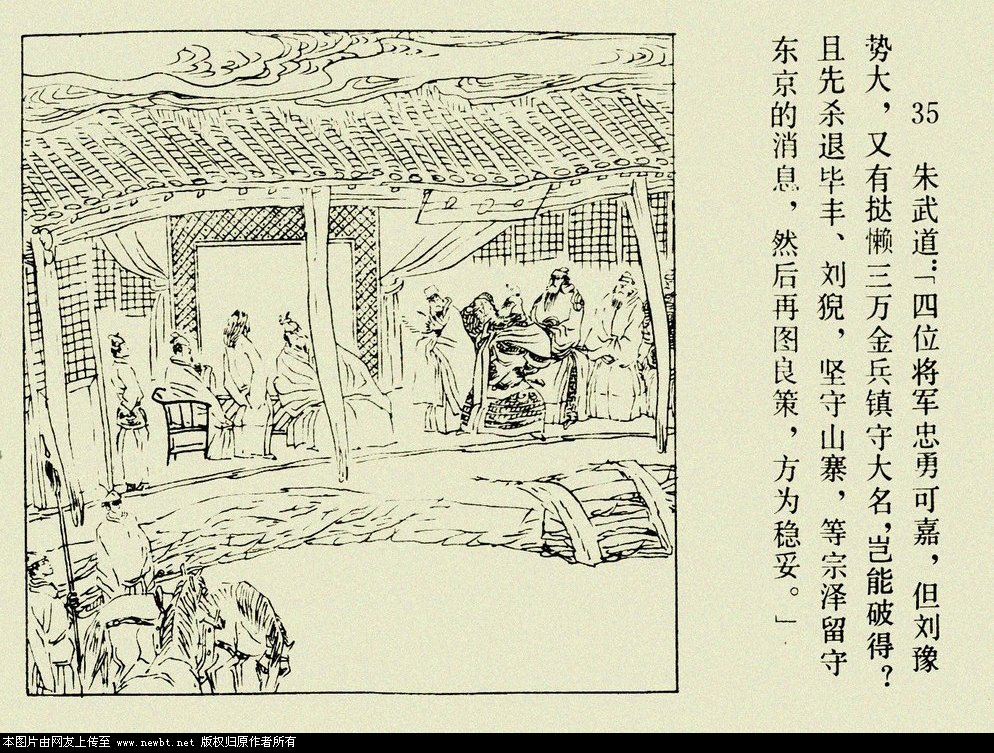 35　朱武道：「四位将军忠勇可嘉，但刘豫
势大，又有挞懒三万金兵镇守大名，岂能破得？
且先杀退毕丰、刘猊，坚守山寨，等宗泽留守
东京的消息，然后再图良策，方为稳妥。」
本图片由网友上传至 www.newbt.net 版权归原作者所有